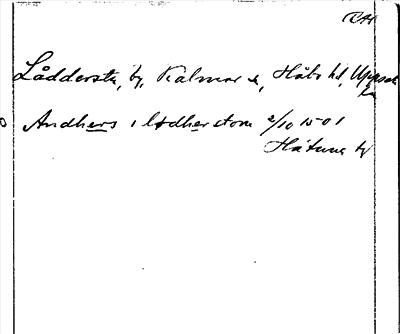 RAP
Lådderstu, by, Kalmar sn, Håbo hd, Uppsala
län
Andhers i lodherstom 2/10 1501
Håtuna ky